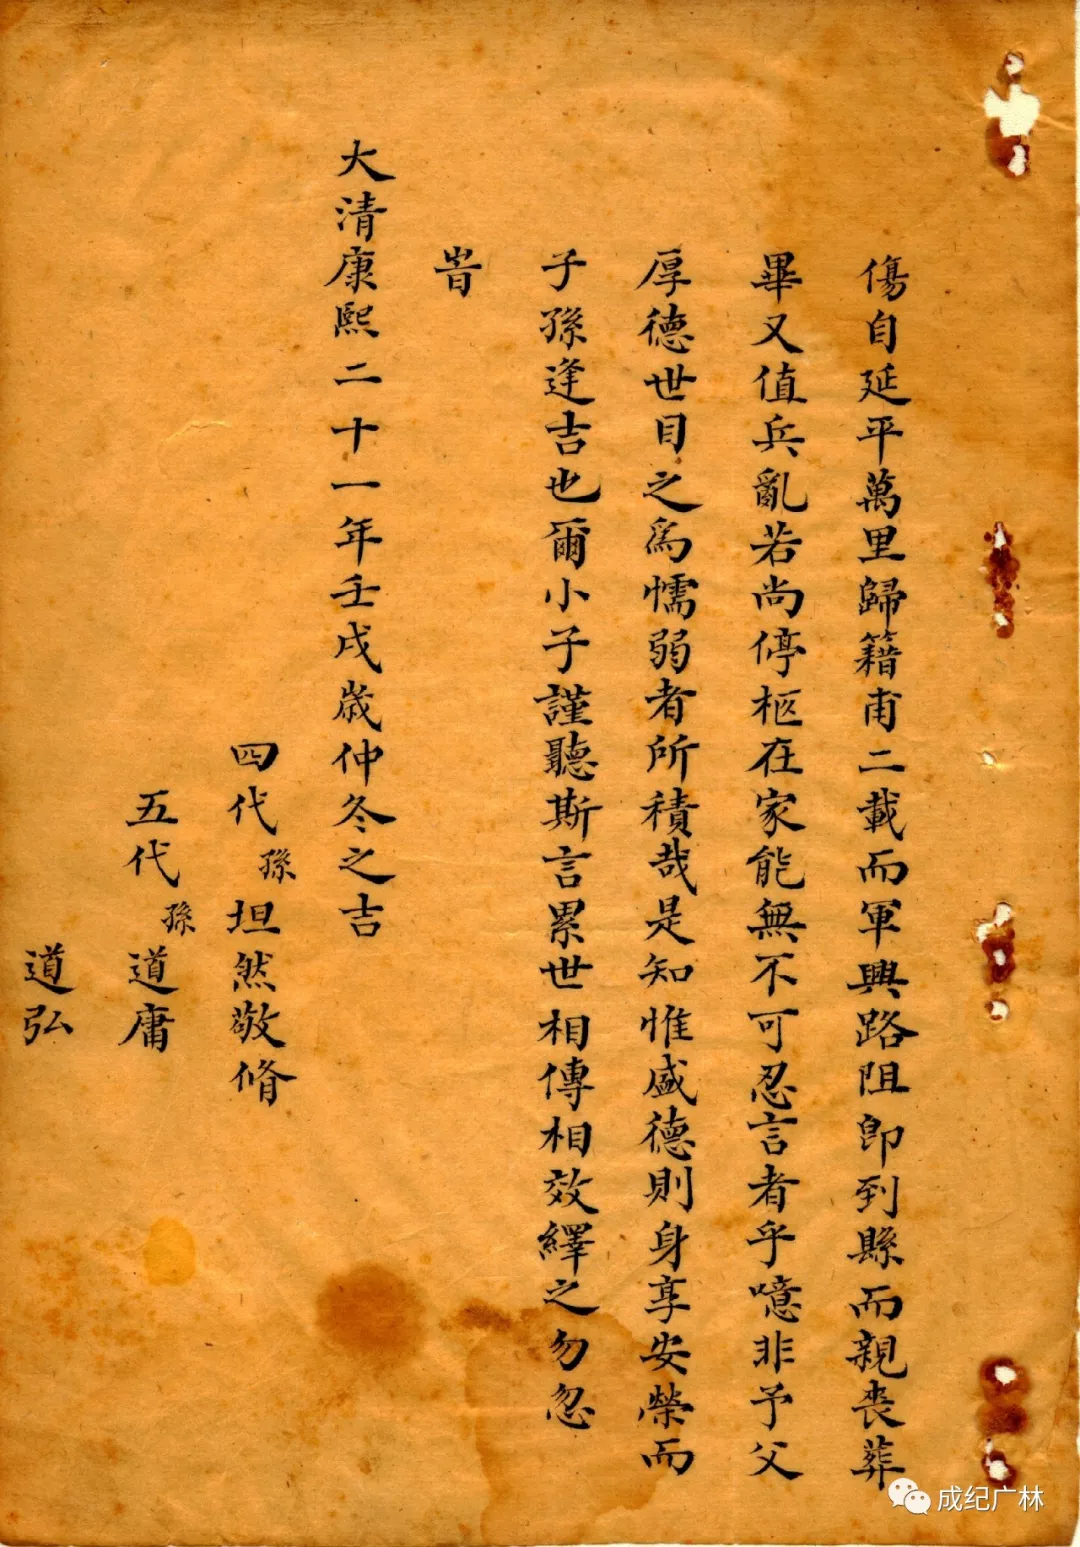 傷自延平萬里歸籍甫二載而軍興路阻即到縣而親喪葬
畢又值兵亂若尚停柩在家能無不可忍言者乎噫非予父
厚德世目之為懦弱者所積哉是知惟盛德則身享安榮而
子孫逢吉也爾小子謹聽斯言累世相傳相效繹之勿忽
旹
大清康熙二十一年壬戌歲仲冬之吉
四代孫坦然敬脩
五代孫道庸
道弘
成纪广林